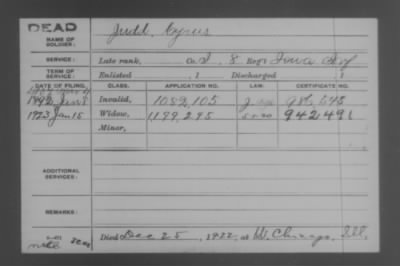 DEAD
NAME OF SOLDIER: Judd, Cyrus
SERVICE: Late rank, Co. I, 8 Reg't Iowa Inf
TERM OF SERVICE: Enlisted , 1 Discharged , 1
DATE OF FILING. CLASS. APPLICATION NO. LAW. CERTIFICATE NO.
1892 Invalid, 1082,105
1923 Jan 15 Widow, 1199,295 5-1-20 942491
Minor,
ADDITIONAL SERVICES:
REMARKS:
Died Dec 25, 1922, at W. Chicago, Ill.